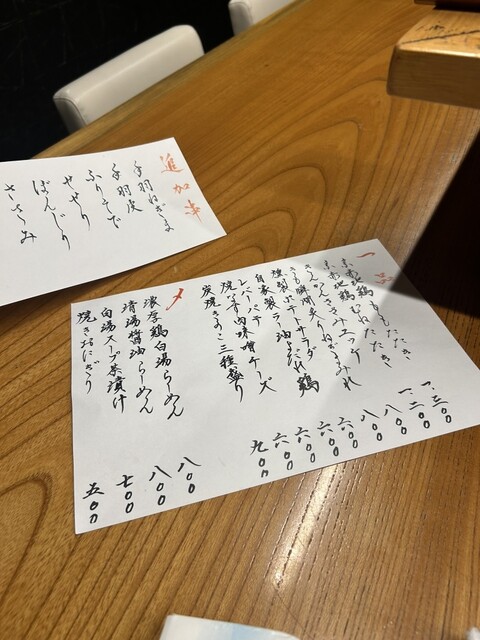 追加串
手羽ねぎま
手羽皮
ふりそで
せせり
ぼんじり
ささみ
一品
地鶏ももたたき 一、三〇〇
地鶏むねたたき 一、二〇〇
ささみユッケ 八〇〇
八〇〇
きも瞬間炙りねぎまみれ 六〇〇
燻製ポテトサラダ 六〇〇
自家製ラー油よだれ鶏 六〇〇
レバーパテ 六〇〇
焼なす肉味噌チーズ
炭焼きのこ三種盛り 九〇〇
〆
濃厚鶏白湯らーめん 八〇〇
清湯醤油らーめん 八〇〇
白湯スープ茶漬け 七〇〇
焼きおにぎり 五〇〇